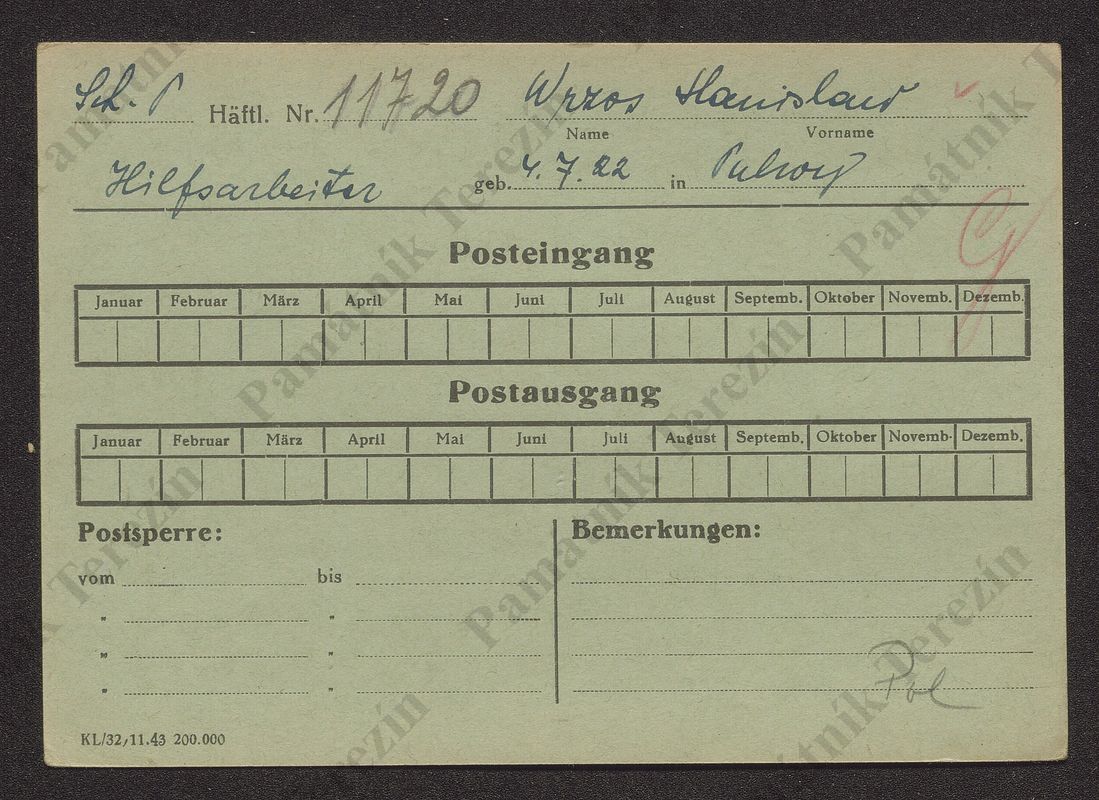 Sch. P Häftl. Nr. 11720 Wrzos Stanislaw
Name Vorname
Hilfsarbeiter geb. 4.7.22 in
Posteingang
Januar Februar März April Mai Juni Juli August Septemb. Oktober Novemb. Dezemb.
Postausgang
Januar Februar März April Mai Juni Juli August Septemb. Oktober Novemb. Dezemb.
Postsperre: Bemerkungen:
vom bis
" "
" "
" "
Pol
KL/32/11.43 200.000
Památník Terezín